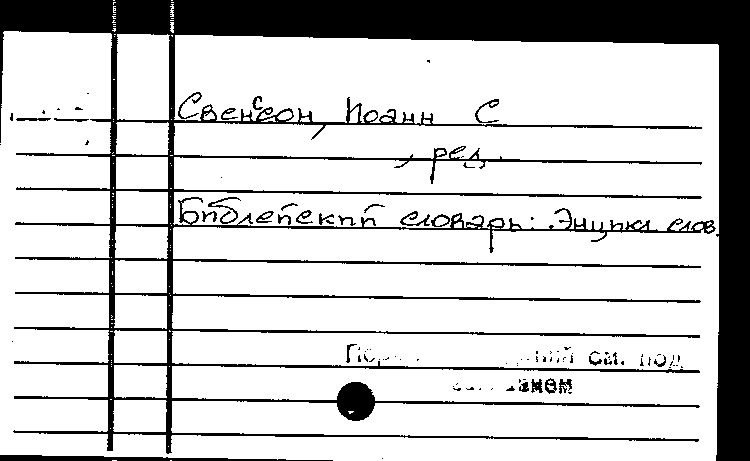 Свенссон, Иоанн С
, ред.
Библейский словарь: Энцикл слов.
см. под